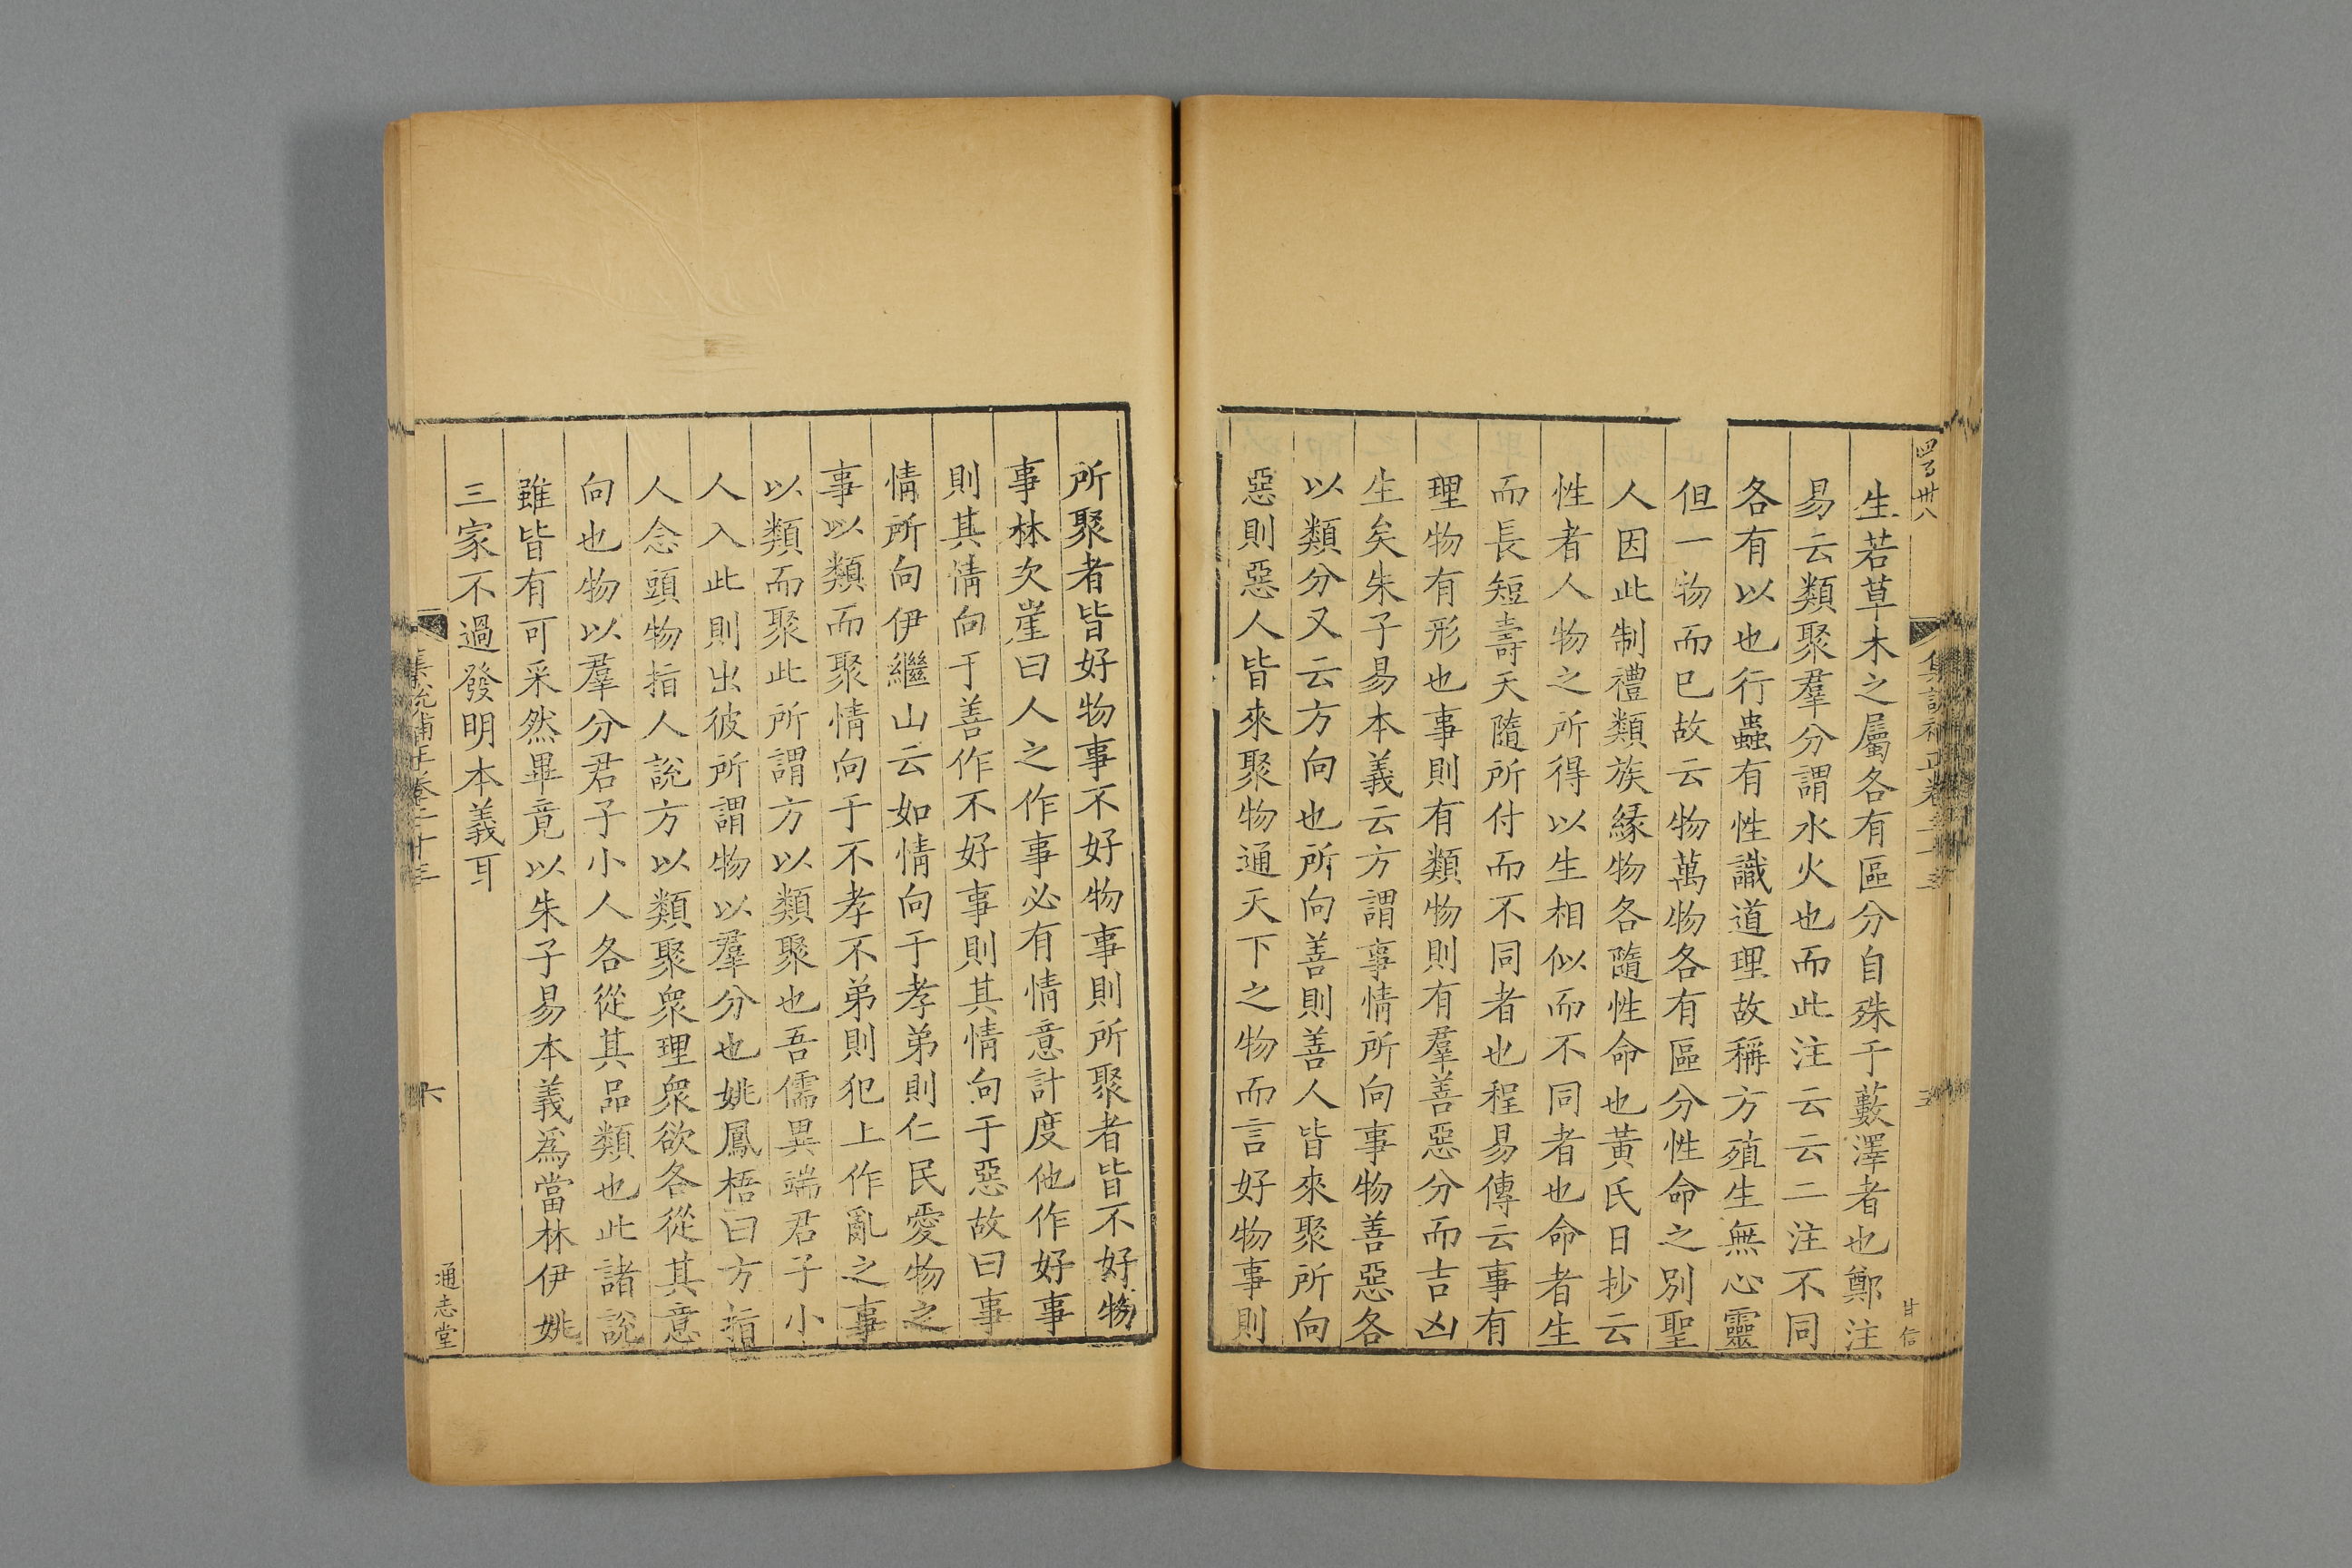 四百卅八
生若草木之屬各有區分自殊于藪澤者也鄭注
易云類聚羣分謂水火也而此注云云二注不同
各有以也行蟲有性識道理故稱方殖生無心靈
但一物而巳故云物萬物各有區分性命之別聖
人因此制禮類族緣物各隨性命也黃氏日抄云
性者人物之所得以生相似而不同者也命者生
而長短壽夭隨所付而不同者也程易傳云事有
理物有形也事則有類物則有羣善惡分而吉凶
生矣朱子易本義云方謂事情所向事物善惡各
以類分又云方向也所向善則善人皆來聚所向
惡則惡人皆來聚物通天下之物而言好物事則
集說補正卷二十三
五
甘信
所聚者皆好物事不好物事則所聚者皆不好物
事林次崖曰人之作事必有情意計度他作好事
則其情向于善作不好事則其情向于惡故曰事
情所向伊繼山云如情向于孝弟則仁民愛物之
事以類而聚情向于不孝不弟則犯上作亂之事
以類而聚此所謂方以類聚也吾儒異端君子小
人入此則出彼所謂物以羣分也姚鳳梧曰方指
人念頭物指人說方以類聚衆理衆欲各從其意
向也物以羣分君子小人各從其品類也此諸說
雖皆有可采然畢竟以朱子易本義爲當林伊姚
三家不過發明本義耳
集說補正卷二十三
六
通志堂